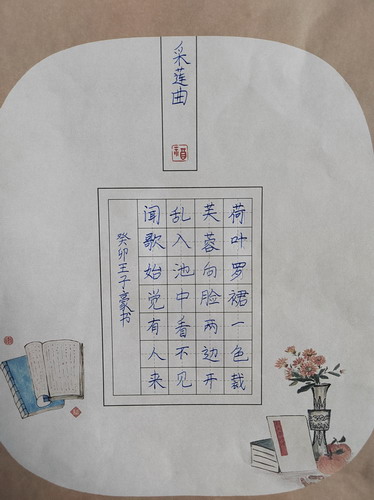 采莲曲
荷叶罗裙一色裁
芙蓉向脸两边开
乱入池中看不见
闻歌始觉有人来
癸卯王子豪书